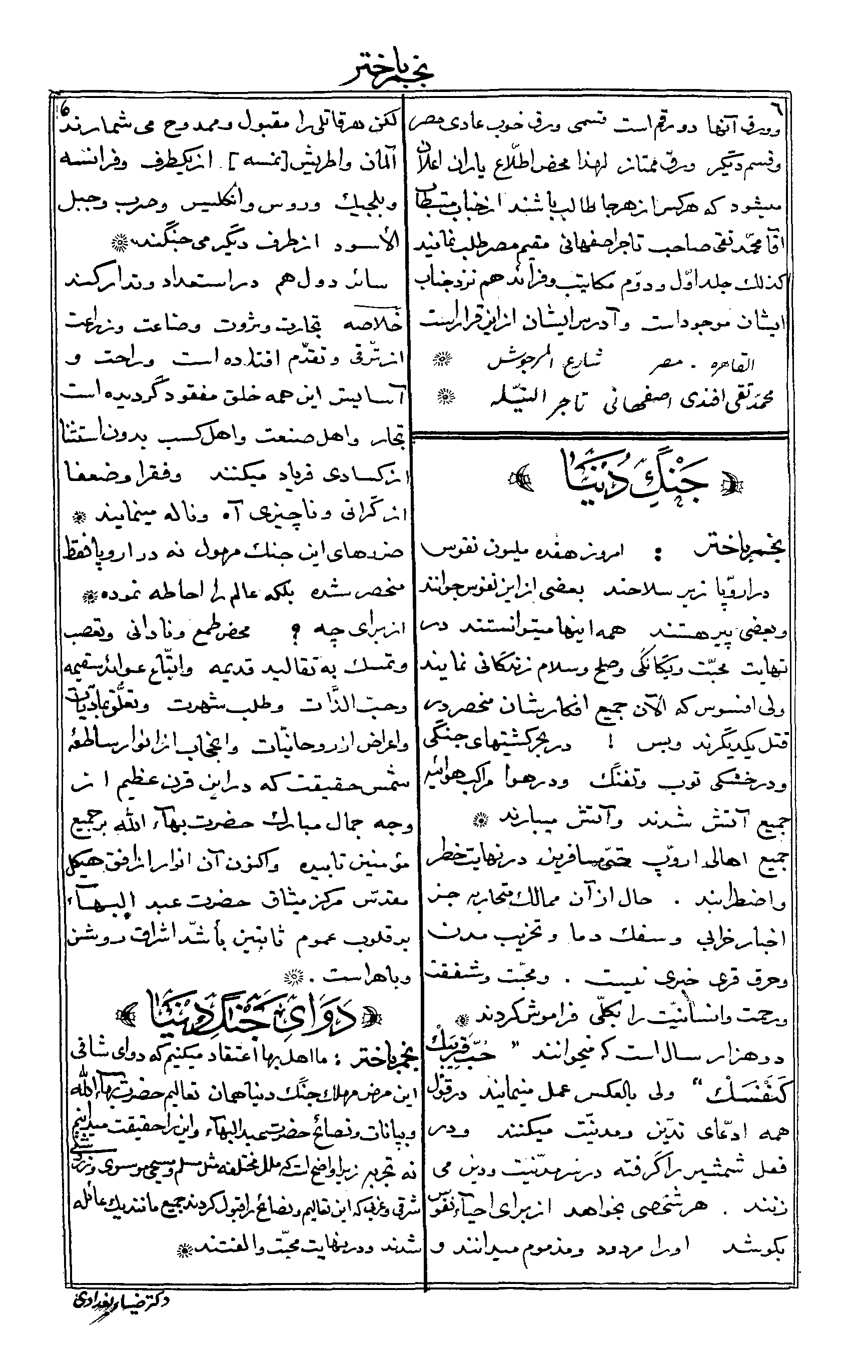 نجم باختر
٦
وورق آنها دو رقم است قسمی ورق خوب عادی مصر
وقسم دیگر ورق ممتاز لهذا محض اطلاع یاران اعلان
میشود که هرکس از هرجا طالب باشند از جناب مستطاب
آقا محمد تقی صاحب تاجر اصفهانی مقیم مصر طلب نمایند
کذلك جلد اوّل ودوّم مکاتیب وفرائد هم نزد جناب
ایشان موجود است وآدرس ایشان از این قرار است
القاهره . مصر شارع المرجوش
محمد تقی افندی اصفهانی تاجر النیّله
جَنْگِ دُنْیَا
نجم باختر : امروز هفده ملیون نفوس
در اروپّا زیر سلاحند بعضی از این نفوس جوانند
وبعضی پیر هستند همه اینها میتوانستند در
نهایت محبّت ویگانگی وصلح وسلام زندگانی نمایند
ولی افسوس که الآن جمیع افکارشان منحصر در
قتل یکدیگرند وبس ! در بحر کشتیهای جنگی
ودر خشکی توپ وتفنگ ودر هوا مراکب هوائیه
جمیع آتش شدند وآتش میبارند
جمیع اهالی اروپ حتّی مسافرین در نهایت خطر
واضطرابند . حال از آن ممالك متحاربه جز
اخبار خرابی وسفك دما وتخریب مدن
وحرق قری خبری نیست . ومحبّت وشفقت
ورحمت وانسانیّت را بکلّی فراموش کردند
دو هزار سال است که میخوانند " حُبّ قَرِیبَكَ
کَنَفْسَكْ " ولی بالعکس عمل مینمایند در قول
همه ادّعای تدیّن ومدنیّت میکنند ودر
فعل شمشیر را گرفته در سر مدنّیت ودین می
زنند . هر شخصی بخواهد از برای احیاء نفوس
بکوشد اورا مردود ومذموم میدانند و
لکن هر قاتلی را مقبول وممدوح می شمارند
آلمان واطریش [نمسه] از یکطرف وفرانسه
وبلجیك وروس وانگلیس وصرب وجبل
الأسود از طرف دیگر می جنگند
سائر دول هم در استعداد وتدارکند
خلاصه تجارت وثروت وصناعت وزراعت
از ترّقی وتقدّم افتاده است وراحت و
آسایش این همه خلق مفقود گردیده است
تجار واهل صنعت واهل کسب بدون استثنا
از کسادی فریاد میکنند وفقرا وضعفا
از گرانی وناچیزی آه وناله مینمایند
ضررهای این جنك مهول نه در اروپا فقط
منحصر شده بلکه عالم را احاطه نموده
از برای چه ؟ محض طمع ونادانی وتعصب
وتمسك به تقالید قدیمه واتّباع عوائد سقیمه
وحبّ الذّات وطلب شهرت وتعلّق بمادّیّات
واعراض از روحانیّات واحتجاب از انوار ساطعهٔ
شمس حقیقت که در این قرن عظیم از
وجه جمال مبارك حضرت بهآء الله بر جمیع
مؤمنین تابیده واکنون آن انوار از افق هیکل
مقدّس مرکز میثاق حضرت عبد البهآء
بر قلوب عموم ثابتین بأشدّ اشراق روشن
وباهر است .
دَوَایِ جَنْگِ دُنْیَا
نجم باختر : ما اهل بها اعتقاد میکنیم که دوای شافی
این مرض مهلك جنگ دنیا همان تعالیم حضرت بهآء الله
وبیانات ونصائح حضرت عبد البهآء واین را حقیقت میدانیم
نه تجریم زیرا واضح است که ملل مختلفه مثل مسلم ومسیحی موسوی وزردشتی
شرقی وغربی که این تعالیم ونصائح را قبول کردند جمیع مانند یك عائله
شدند ودر نهایت محبّت والفتند
دکتر ضیاء بغدادی